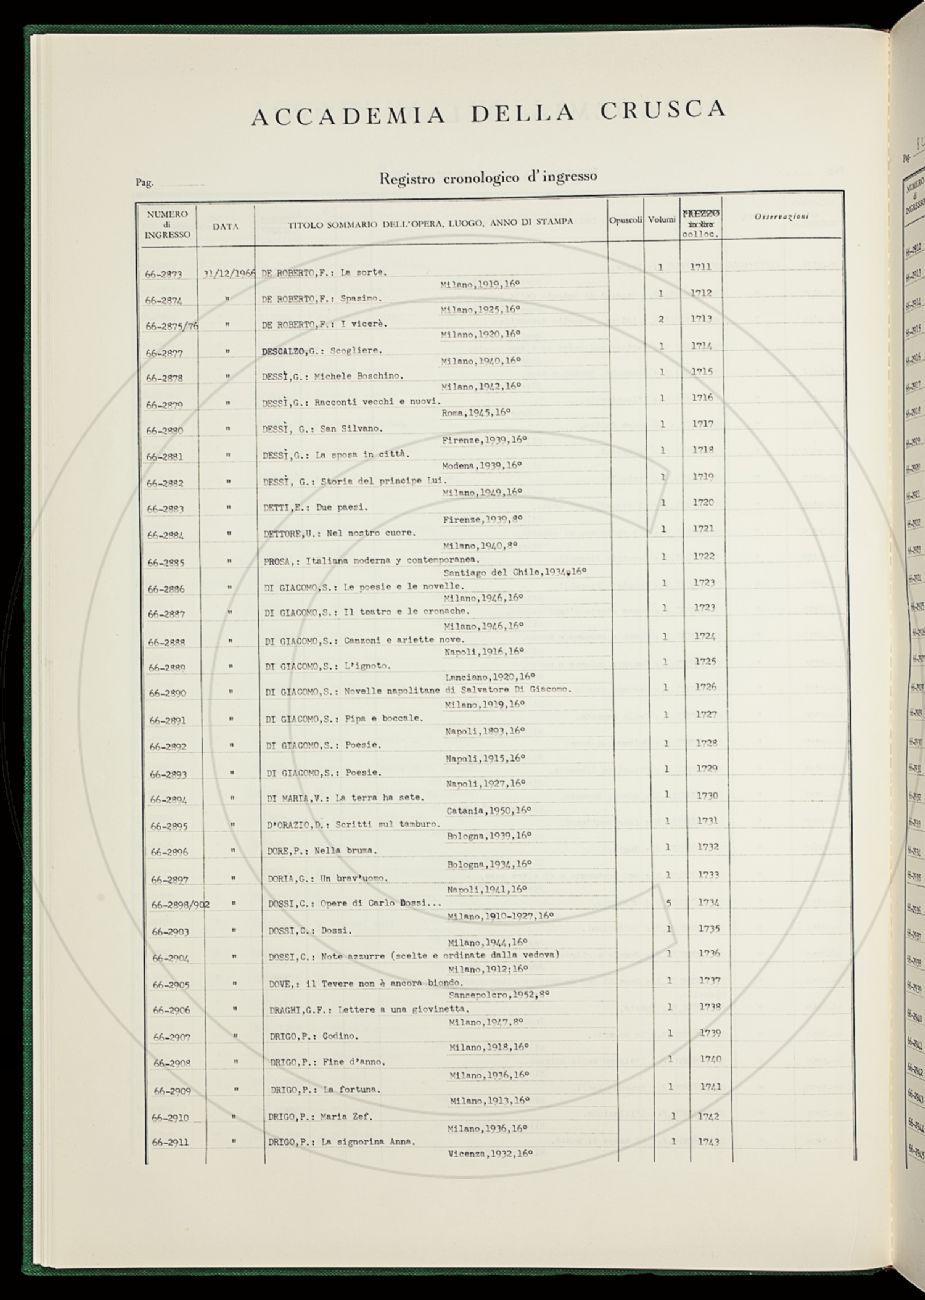 ACCADEMIA DELLA CRUSCA
Pag.
Registro cronologico d'ingresso
NUMERO di INGRESSO DATA TITOLO SOMMARIO DELL'OPERA, LUOGO, ANNO DI STAMPA Opuscoli Volumi PREZZO in lire colloc. Osservazioni
66-2873 31/12/1966 DE ROBERTO,F.: La sorte. 1 1711
Milano,1919,16º
66-2874 " DE ROBERTO,F.: Spasimo. 1 1712
Milano,1925,16º
66-2875/76 " DE ROBERTO,F.: I vicerè. 2 1713
Milano,1920,16º
66-2877 " DESCALZO,G.: Scogliere. 1 1714
Milano,1940,16º
66-2878 " DESSÌ,G.: Michele Boschino. 1 1715
Milano,1942,16º
66-2879 " DESSÌ,G.: Racconti vecchi e nuovi. 1 1716
Roma,1945,16º
66-2880 " DESSÌ, G.: San Silvano. 1 1717
Firenze,1939,16º
66-2881 " DESSÌ,G.: La sposa in città. 1 1718
Modena,1939,16º
66-2882 " DESSÌ, G.: Storia del principe Lui. 1 1719
Milano,1949,16º
66-2883 " DETTI,E.: Due paesi. 1 1720
Firenze,1939,8º
66-2884 " DETTORE,U.: Nel nostro cuore. 1 1721
Milano,1940,8º
66-2885 " PROSA,: Italiana moderna y contemporanea. 1 1722
Santiago del Chile,1934,16º
66-2886 " DI GIACOMO,S.: Le poesie e le novelle. 1 1723
Milano,1946,16º
66-2887 " DI GIACOMO,S.: Il teatro e le cronache. 1 1723
Milano,1946,16º
66-2888 " DI GIACOMO,S.: Canzoni e ariette nove. 1 1724
Napoli,1916,16º
66-2889 " DI GIACOMO,S.: L'ignoto. 1 1725
Lanciano,1920,16º
66-2890 " DI GIACOMO,S.: Novelle napolitane di Salvatore Di Giacomo. 1 1726
Milano,1919,16º
66-2891 " DI GIACOMO,S.: Pipa e boccale. 1 1727
Napoli,1893,16º
66-2892 " DI GIACOMO,S.: Poesie. 1 1728
Napoli,1915,16º
66-2893 " DI GIACOMO,S.: Poesie. 1 1729
Napoli,1927,16º
66-2894 " DI MARIA,V.: La terra ha sete. 1 1730
Catania,1950,16º
66-2895 " D'ORAZIO,D.: Scritti sul tamburo. 1 1731
Bologna,1939,16º
66-2896 " DORE,P.: Nella bruma. 1 1732
Bologna,1934,16º
66-2897 " DORIA,G.: Un brav'uomo. 1 1733
Napoli,1941,16º
66-2898/902 " DOSSI,C.: Opere di Carlo Dossi... 5 1734
Milano,1910-1927,16º
66-2903 " DOSSI,C.: Dossi. 1 1735
Milano,1944,16º
66-2904 " DOSSI,C.: Note azzurre (scelte e ordinate dalla vedova) 1 1736
Milano,1912;16º
66-2905 " DOVE,: il Tevere non è ancora biondo. 1 1737
Sansepolcro,1952,8º
66-2906 " DRAGHI,G.F.: Lettere a una giovinetta. 1 1738
Milano,1947,8º
66-2907 " DRIGO,P.: Codino. 1 1739
Milano,1918,16º
66-2908 " DRIGO,P.: Fine d'anno. 1 1740
Milano,1936,16º
66-2909 " DRIGO,P.: La fortuna. 1 1741
Milano,1913,16º
66-2910 " DRIGO,P.: Maria Zef. 1 1742
Milano,1936,16º
66-2911 " DRIGO,P.: La signorina Anna. 1 1743
Vicenza,1932,16º